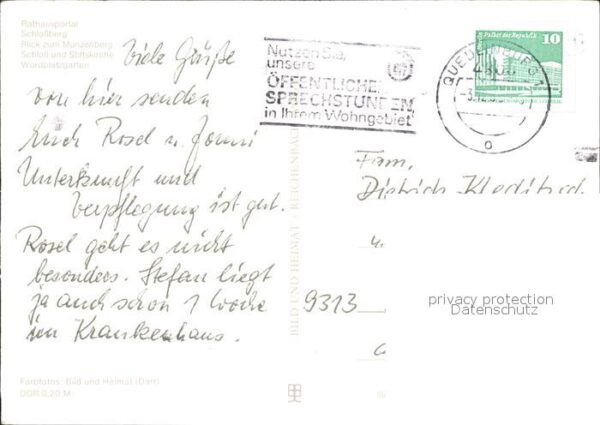 Rathausportal
Schloßberg
Blick zum Münzenberg
Schloß und Stiftskirche
Wordplatzgarten
Viele Grüße
von hier senden
Euch Rosel u. Jonni
Unterkunft und
Verpflegung ist gut.
Rosel geht es nicht
besonders. Stefan liegt
ja auch schon 1 Woche
im Krankenhaus.
Farbfotos: Bild und Heimat (Darr)
DDR 0,20 M
BILD UND HEIMAT · REICHENBACH
Nutzen Sie
unsere
ÖFFENTLICHEN
SPRECHSTUNDEN
in Ihrem Wohngebiet
QUEDLINBURG 1
Palast der Republik
10
Fam.
Dietrich
9313
privacy protection
Datenschutz